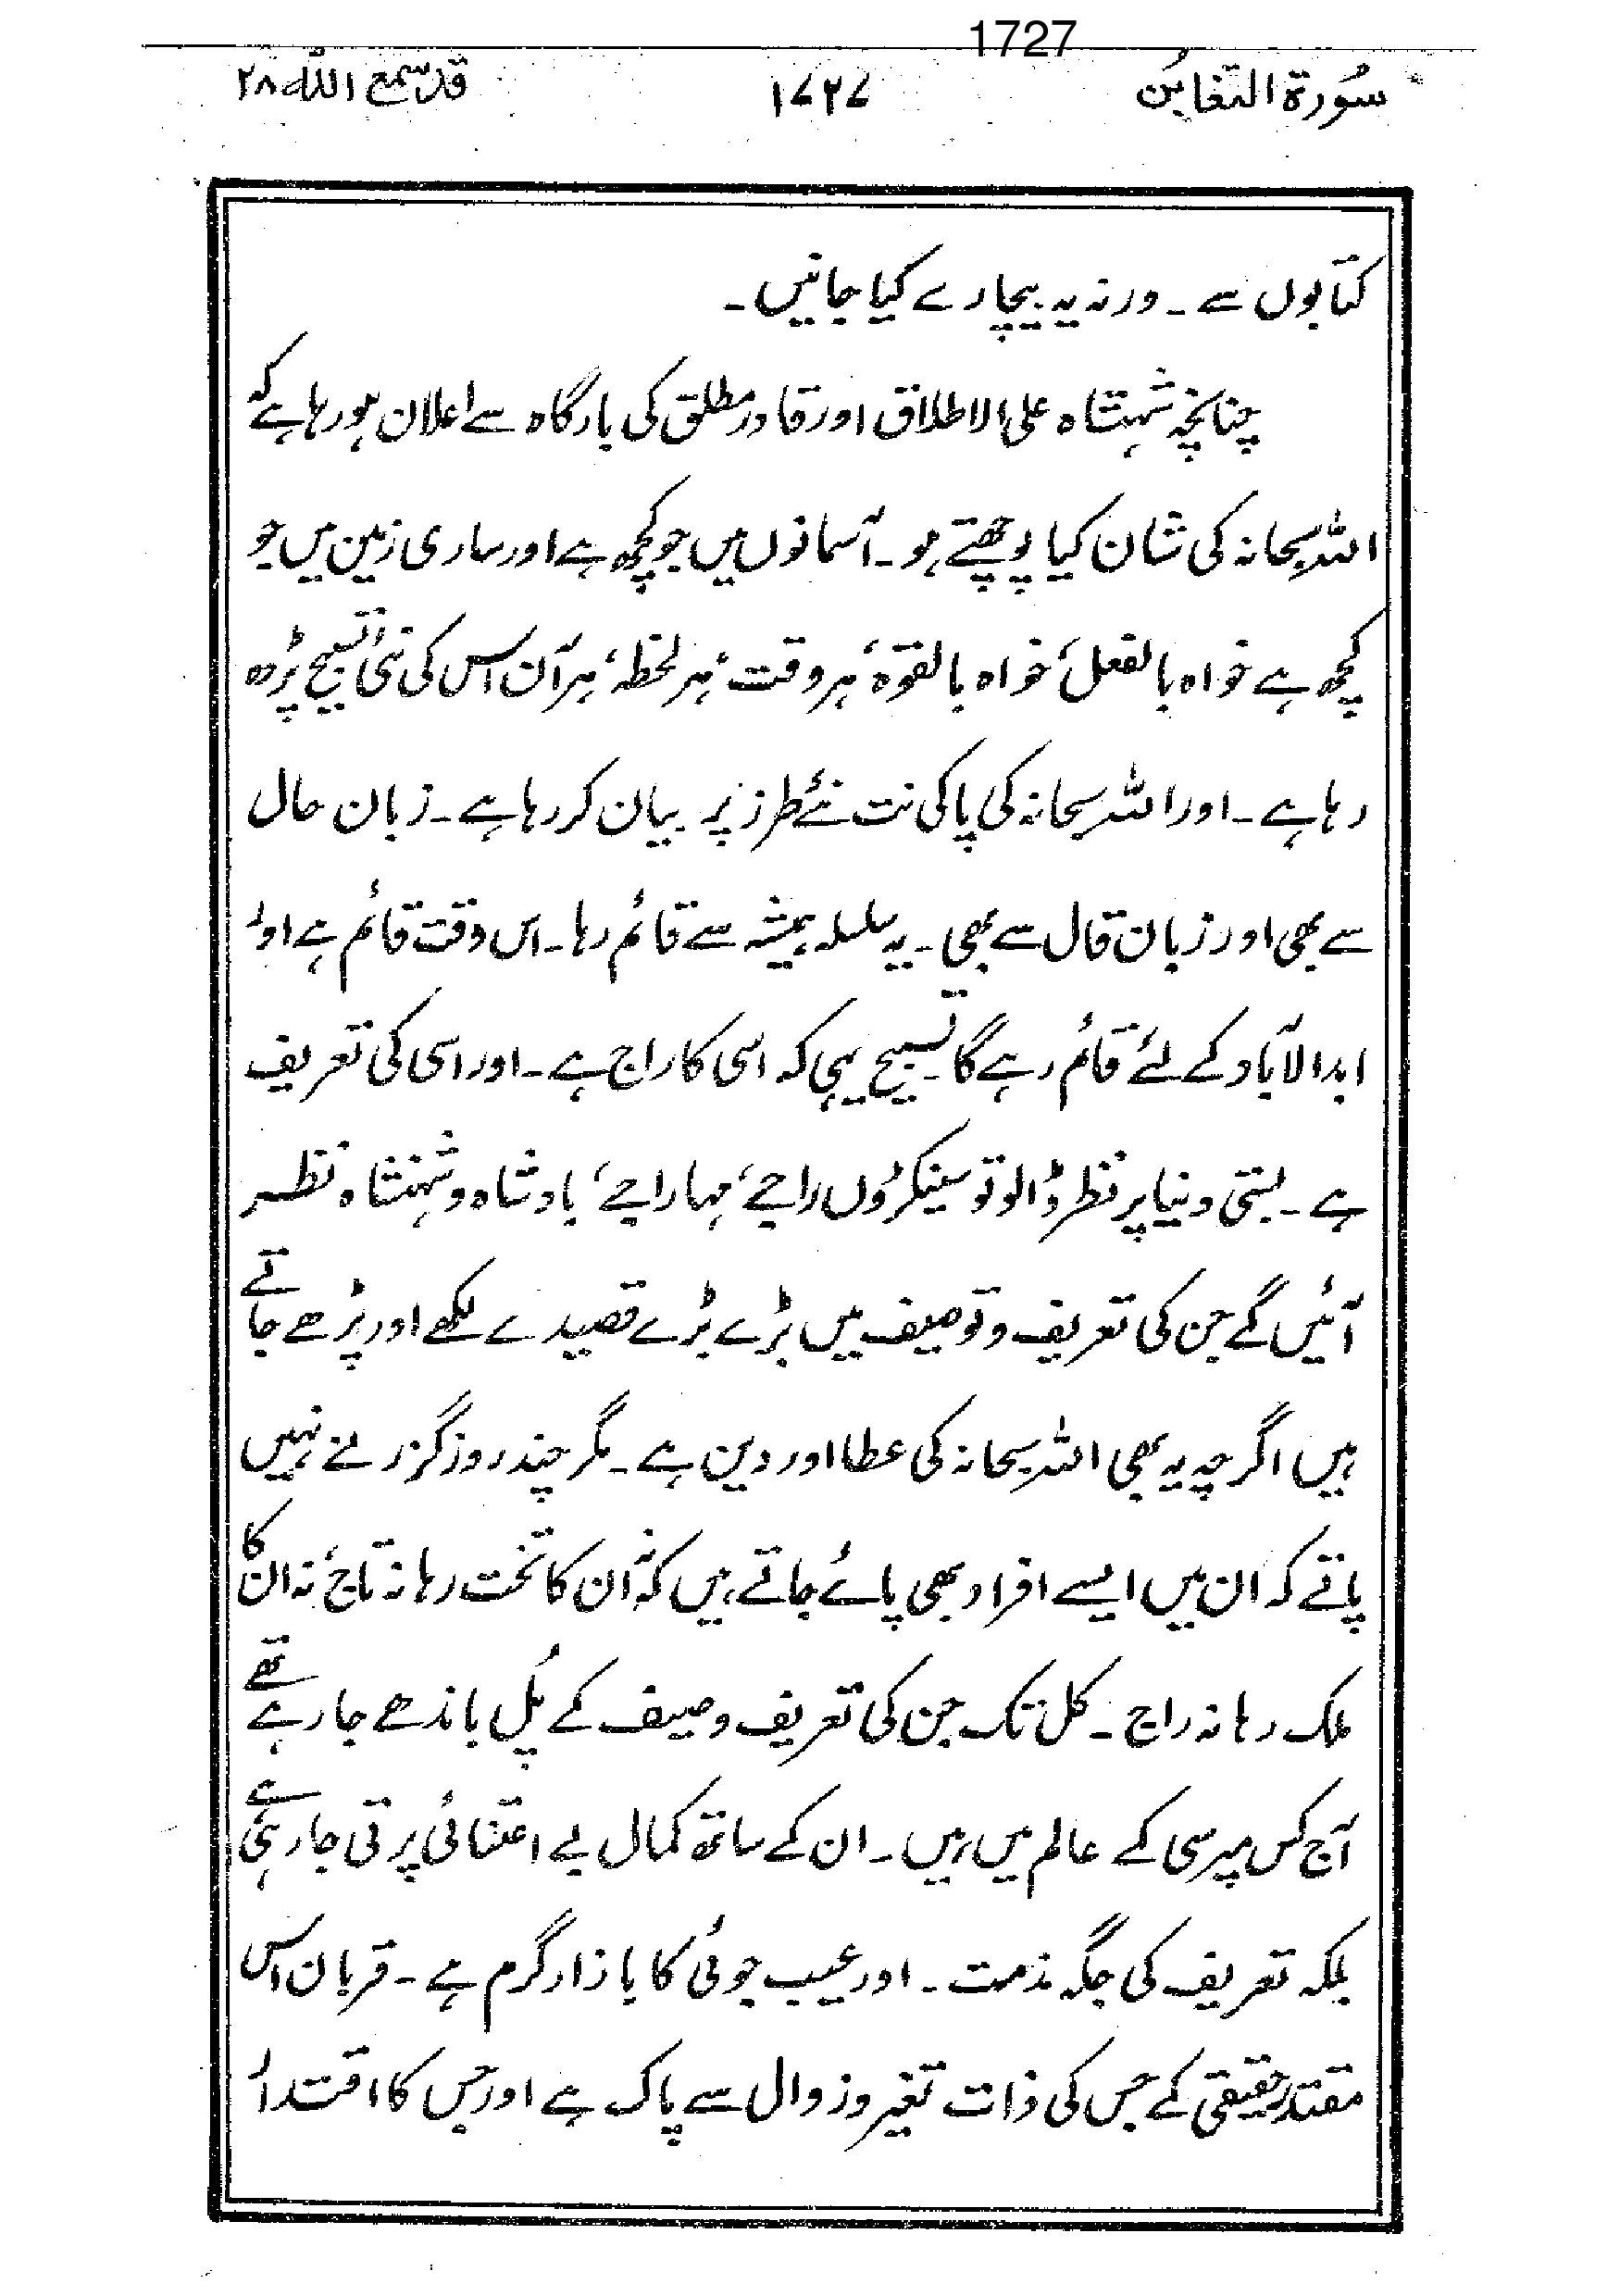 1727
سُورۃ التغابُن ۱۷۲۷ قد سمع اللہ ۲۸
کتابوں سے ۔ ورنہ یہ بیچارے کیا جانیں ۔
چنانچہ شہنشاہ علی الاطلاق اور قادر مطلق کی بارگاہ سے اعلان ہو رہا ہے کہ
اللہ سبحانہ کی شان کیا پوچھتے ہو ۔ آسمانوں میں جو کچھ ہے اور ساری زمین میں جو
کچھ ہے خواہ بالفعل، خواہ بالقوہ، ہر وقت، ہر لحظہ، ہر آن اس کی نئی تسبیح پڑھ
رہا ہے ۔ اور اللہ سبحانہ کی پاکی نت نئے طرز پر بیان کر رہا ہے ۔ زبان حال
سے بھی اور زبان قال سے بھی ۔ یہ سلسلہ ہمیشہ سے قائم رہا ۔ اس وقت قائم ہے اور
ابد الآباد کے لئے قائم رہے گا ۔ تسبیح یہی کہ اسی کا راج ہے ۔ اور اسی کی تعریف
ہے ۔ بستی دنیا پر نظر ڈالو تو سینکڑوں راجے، مہاراجے، بادشاہ و شہنشاہ نظر
آئیں گے جن کی تعریف و توصیف میں بڑے بڑے قصیدے لکھے اور پڑھے جاتے
ہیں اگرچہ یہ بھی اللہ سبحانہ کی عطا اور دین ہے ۔ مگر چند روز گزرنے نہیں
پاتے کہ ان میں ایسے افراد بھی پائے جاتے ہیں کہ نہ ان کا تخت رہا نہ تاج، نہ ان کا
ملک رہا نہ راج ۔ کل تک جن کی تعریف وصیف کے پُل باندھے جا رہے تھے
آج کس مپرسی کے عالم میں ہیں ۔ ان کے ساتھ کمال بے اعتنائی برتی جا رہی ہے
بلکہ تعریف کی جگہ مذمت ۔ اور عیب جوئی کا بازار گرم ہے ۔ قربان اس
مقتدر حقیقی کے جس کی ذات تغیر و زوال سے پاک ہے اور جس کا اقتدار